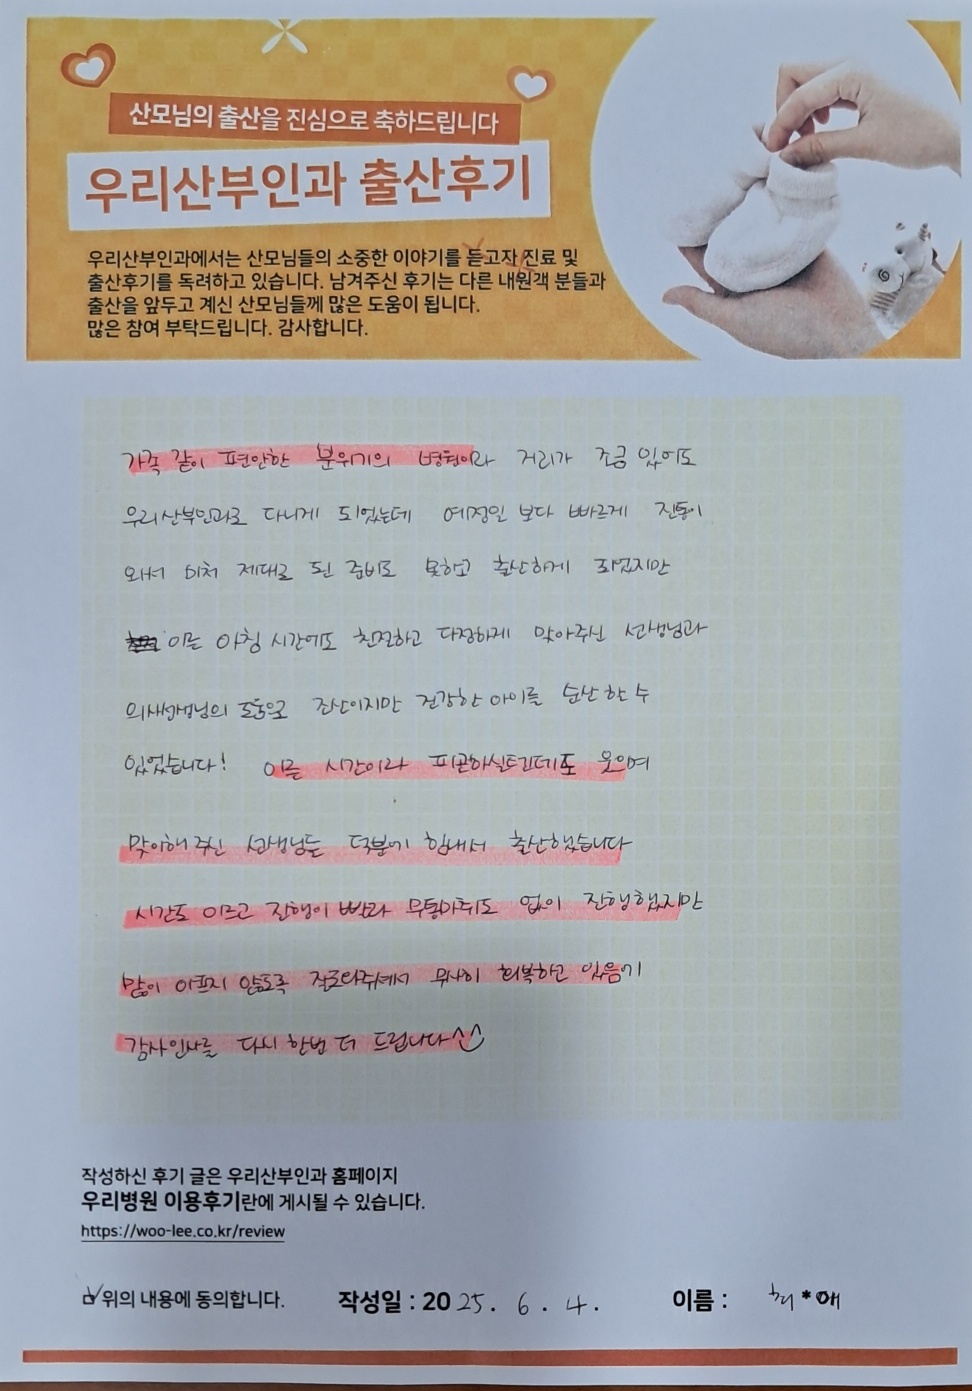 산모님의 출산을 진심으로 축하드립니다
우리산부인과 출산후기
우리산부인과에서는 산모님들의 소중한 이야기를 듣고자 진료 및
출산후기를 독려하고 있습니다. 남겨주신 후기는 다른 내원객 분들과
출산을 앞두고 계신 산모님들께 많은 도움이 됩니다.
많은 참여 부탁드립니다. 감사합니다.
가족 같이 편안한 분위기의 병원이라 거리가 조금 있어도
우리산부인과로 다니게 되었는데 예정일 보다 빠르게 진통이
와서 미처 제대로 된 준비도 못하고 출산하게 되었지만
이른 아침 시간에도 친절하고 다정하게 맞아주신 선생님과
의사선생님의 도움으로 조산이지만 건강한 아이를 순산 한 수
있었습니다! 이른 시간이라 피곤하실텐데도 웃으며
맞이해 주신 선생님들 덕분에 힘내서 출산했습니다
시간도 이르고 진행이 빨라 무통마취도 없이 진행했지만
많이 아프지 않도록 잘 도와주셔서 무사히 회복하고 있음에
감사인사를 다시 한번 더 드립니다^^
작성하신 후기 글은 우리산부인과 홈페이지
우리병원 이용후기란에 게시될 수 있습니다.
https://woo-lee.co.kr/review
위의 내용에 동의합니다. 작성일 : 2025. 6. 4. 이름 : 최*애